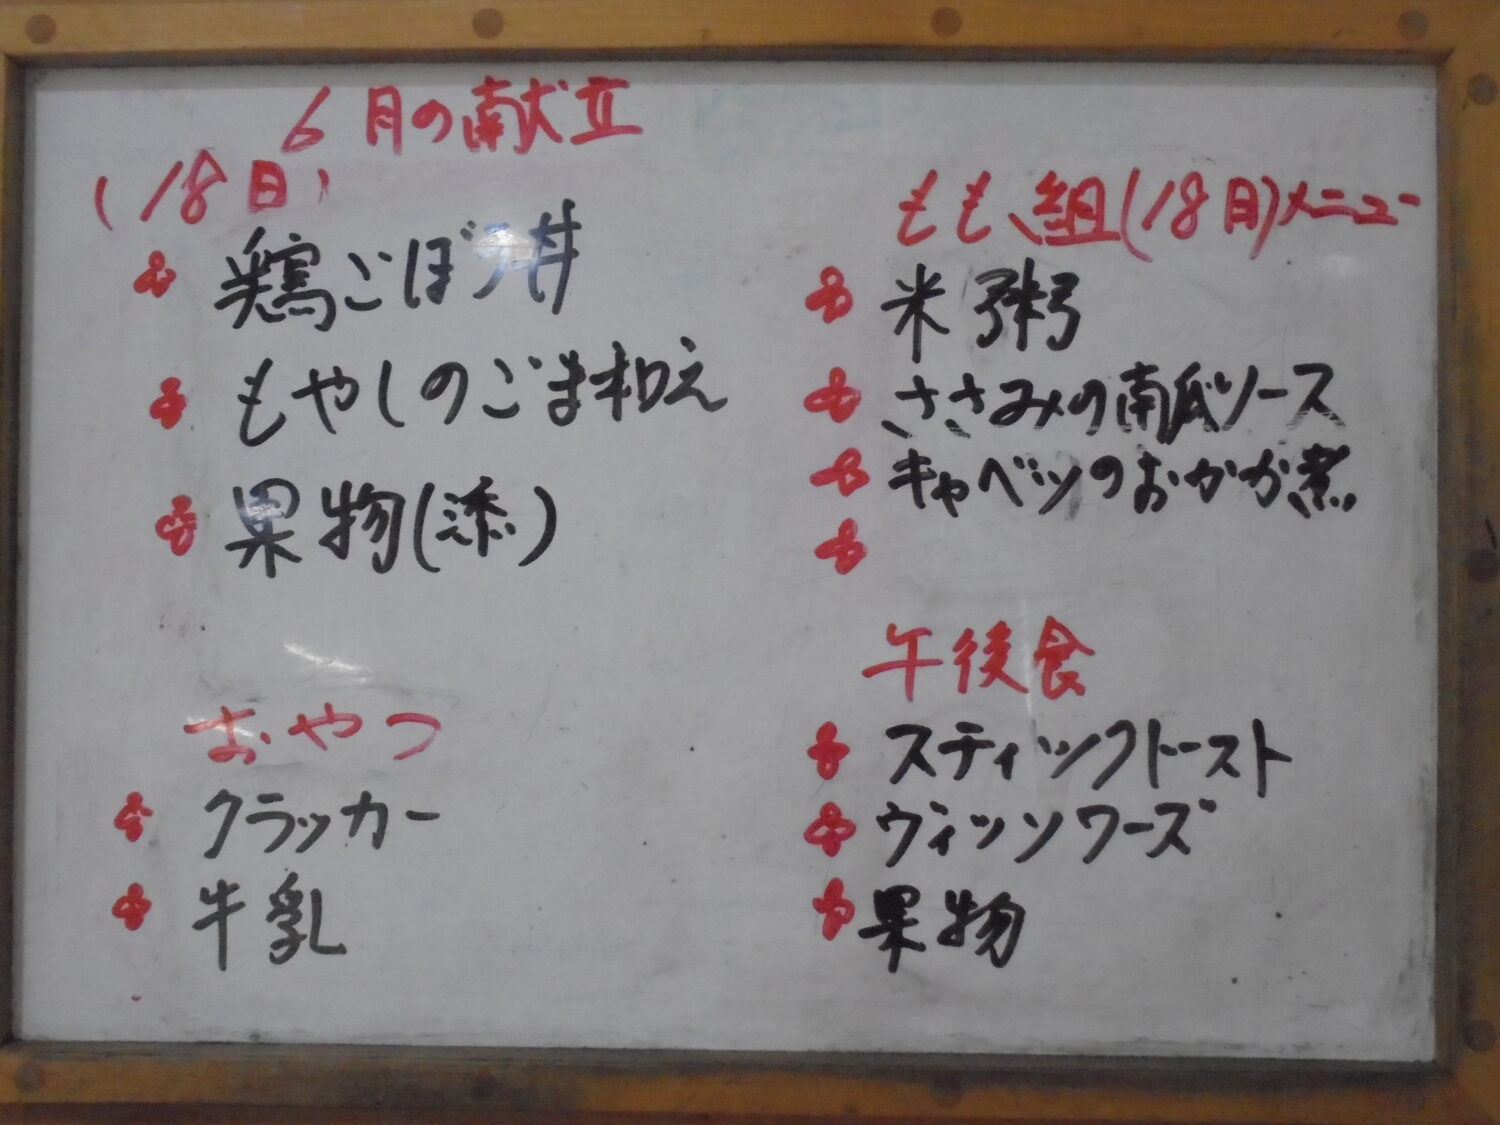 6月の献立
(18日)
鶏ごぼう丼
もやしのごま和え
果物(添)
おやつ
クラッカー
牛乳
もも組(18日)メニュー
米粥
ささみの南瓜ソース
キャベツのおかか煮
午後食
スティックトースト
ウィッソワーズ
果物